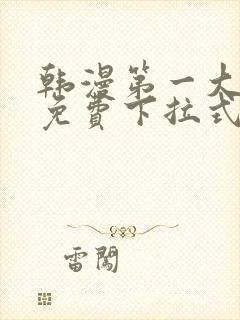 韩漫第一大
免費下拉式
雷闖